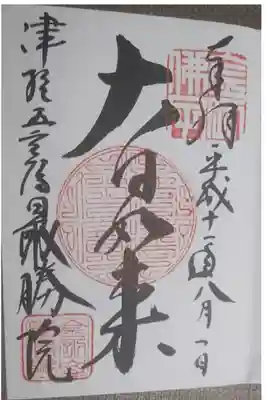 奉拝 平成十一年八月一日
大日如来
津軽五重塔最勝院